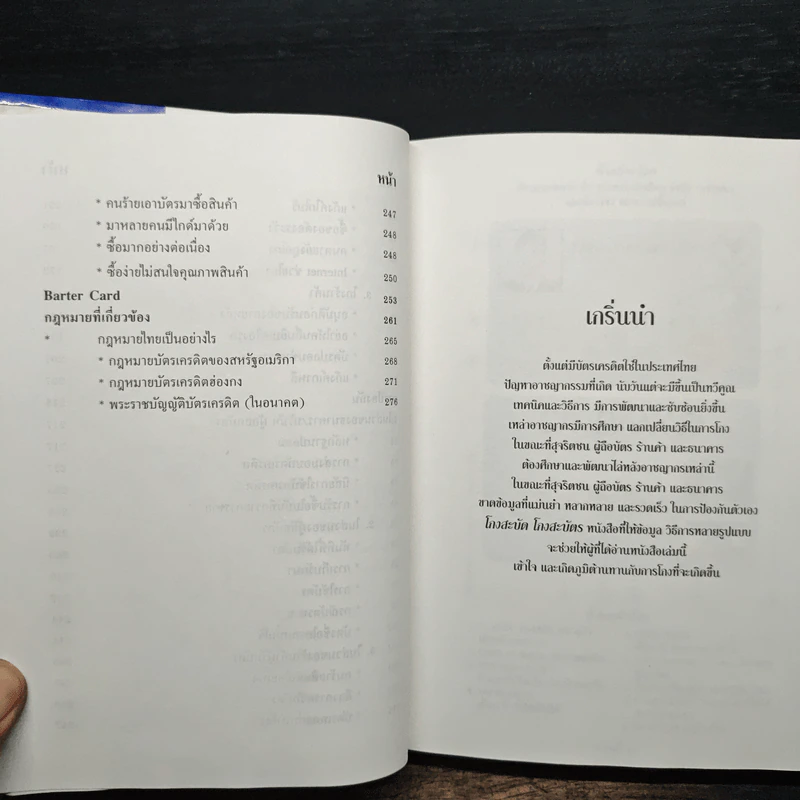 หน้า
* คนร้ายเอาบัตรมาซื้อสินค้า 247
* มาหลายคนมีไกด์มาด้วย 248
* ซื้อมากอย่างต่อเนื่อง 248
* ซื้อง่ายไม่สนใจคุณภาพสินค้า 250
Barter Card 253
กฎหมายที่เกี่ยวข้อง 261
* กฎหมายไทยเป็นอย่างไร 265
* กฎหมายบัตรเครดิตของสหรัฐอเมริกา 268
* กฎหมายบัตรเครดิตฮ่องกง 271
* พระราชบัญญัติบัตรเครดิต (ในอนาคต) 276
เกริ่นนำ
ตั้งแต่มีบัตรเครดิตใช้ในประเทศไทย
ปัญหาอาชญากรรมที่เกิด นับวันแต่จะมีขึ้นเป็นทวีคูณ
เทคนิคและวิธีการ มีการพัฒนาและซับซ้อนยิ่งขึ้น
เหล่าอาชญากรมีการศึกษา แลกเปลี่ยนวิธีในการโกง
ในขณะที่สุจริตชน ผู้ถือบัตร ร้านค้า และธนาคาร
ต้องศึกษาและพัฒนาไล่หลังอาชญากรเหล่านี้
ในขณะที่สุจริตชน ผู้ถือบัตร ร้านค้า และธนาคาร
ขาดข้อมูลที่แม่นยำ หลากหลาย และรวดเร็ว ในการป้องกันตัวเอง
โกงสะบัด โกงสะบัตร หนังสือที่ให้ข้อมูล วิธีการหลายรูปแบบ
จะช่วยให้ผู้ที่ได้อ่านหนังสือเล่มนี้
เข้าใจ และเกิดภูมิต้านทานกับการโกงที่จะเกิดขึ้น